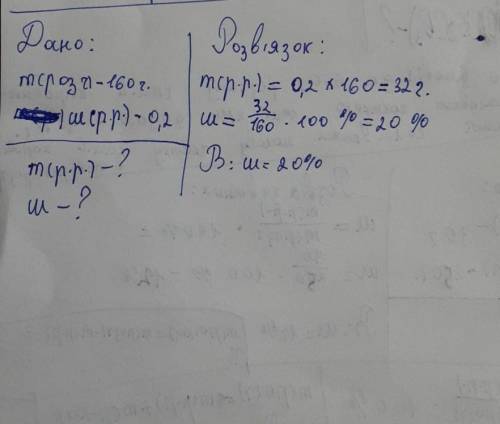 Дано:
m(розч)-160г.
ш(р.р.)-0,2
m(р.р.)-?
ш-?
Розв'язок:
m(р.р.)=0,2×160=32г.
ш=32/160·100%=20%
В: ш=20%